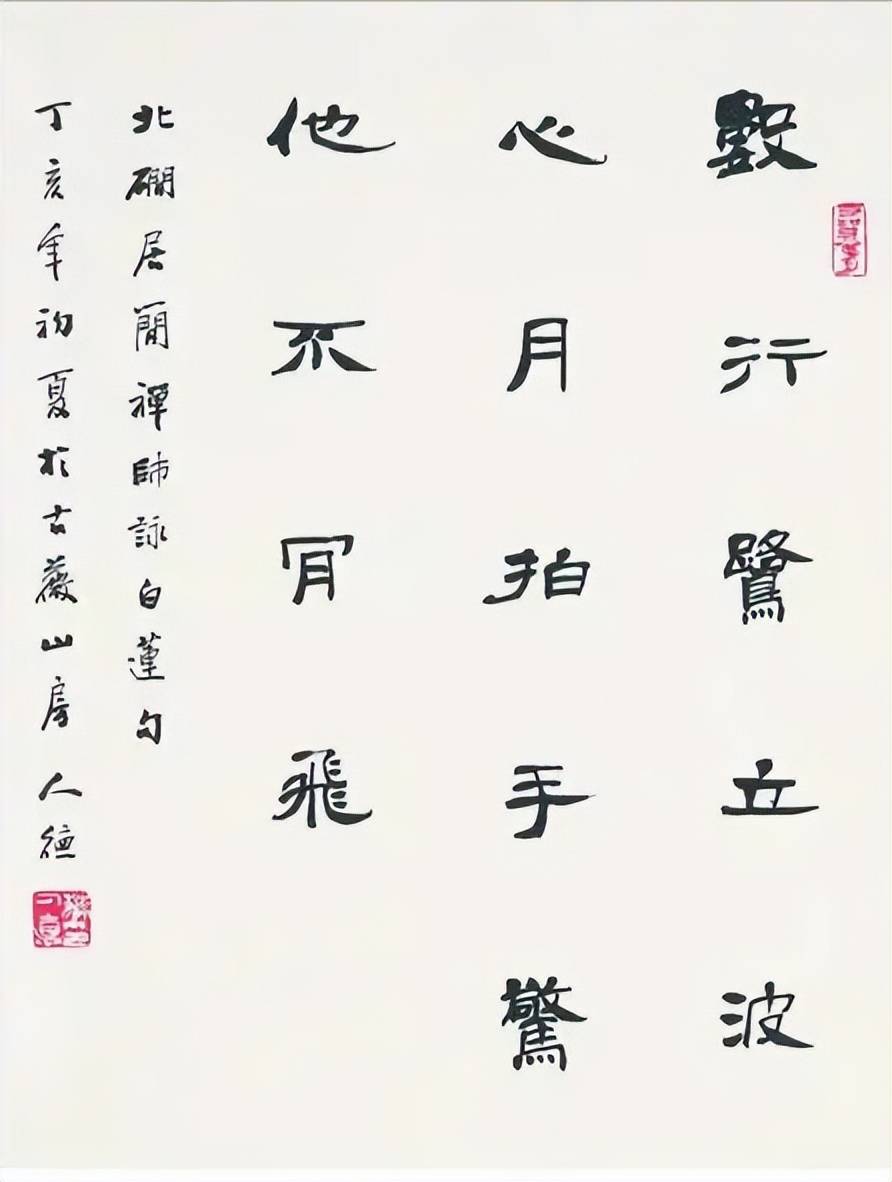 數行鷺立波
心月拍手驚
他不肎飛
北磵居簡禪師詠白蓮句
丁亥年初夏於古薇山房 人德